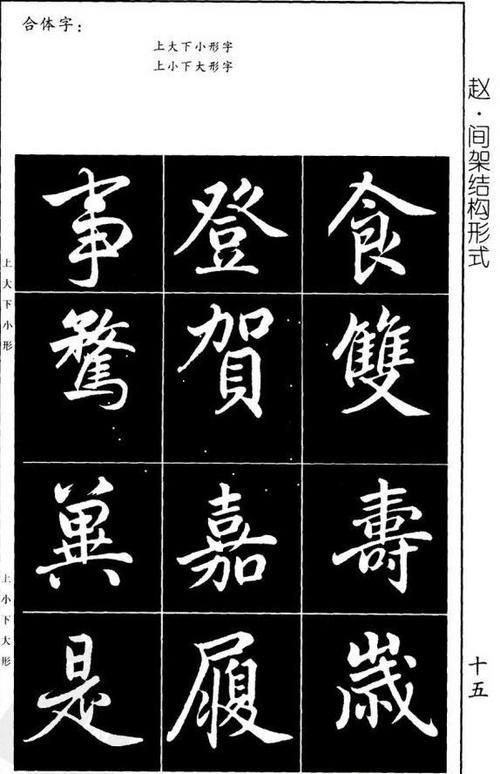 合体字：
上大下小形字
上小下大形字
赵·间架结构形式
上大下小形
事登食
騖賀雙
上小下大形
嘉壽
是履歲
十五